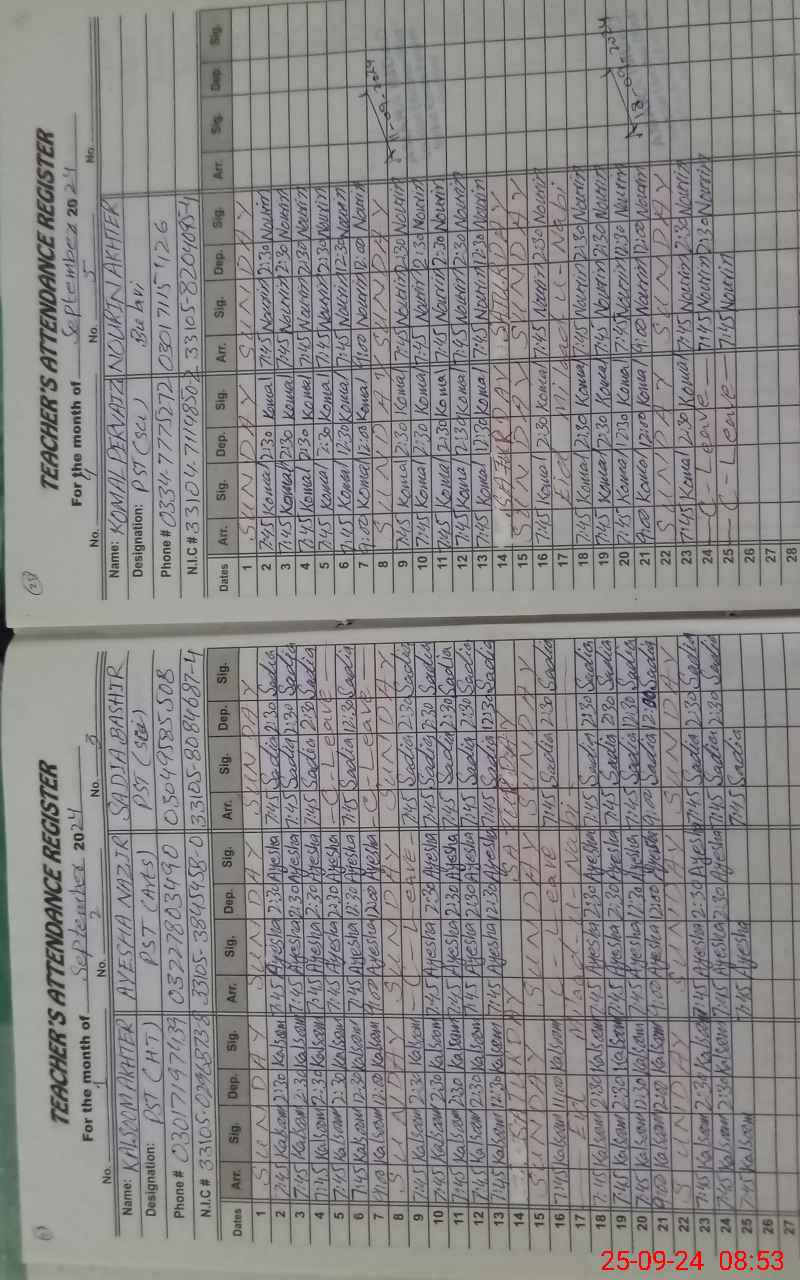 TEACHER'S ATTENDANCE REGISTER
For the month of September 2024
No. 1 No. 2 No. 3
Name: KALSOOM AKHTER AYESHA NAZIR SADIA BASHIR
Designation: PST (HT) PST (Arts) PST (Sci)
Phone # 03017197439 03227803490 03049585508
N.I.C # 33105-3845458-0 33105-8084687-4
Dates Arr. Sig. Dep. Sig. Arr. Sig. Dep. Sig. Arr. Sig. Dep. Sig.
1 SUNDAY SUNDAY SUNDAY
2 7:45 Kalsoom 2:30 Kalsoom 7:45 Ayesha 2:30 Ayesha 7:45 Sadia 2:30 Sadia
3 7:45 Kalsoom 2:30 Kalsoom 7:45 Ayesha 2:30 Ayesha 7:45 Sadia 2:30 Sadia
4 7:45 Kalsoom 2:30 Kalsoom 7:45 Ayesha 2:30 Ayesha 7:45 Sadia 2:30 Sadia
5 7:45 Kalsoom 2:30 Kalsoom 7:45 Ayesha 2:30 Ayesha - C - Leave -
6 7:45 Kalsoom 12:30 Kalsoom 7:45 Ayesha 12:30 Ayesha 7:45 Sadia 12:30 Sadia
7 9:00 Kalsoom 12:00 Kalsoom 9:00 Ayesha 12:00 Ayesha - C - Leave -
8 SUNDAY SUNDAY SUNDAY
9 7:45 Kalsoom 2:30 Kalsoom - C - Leave - 7:45 Sadia 2:30 Sadia
10 7:45 Kalsoom 2:30 Kalsoom 7:45 Ayesha 2:30 Ayesha 7:45 Sadia 2:30 Sadia
11 7:45 Kalsoom 2:30 Kalsoom 7:45 Ayesha 2:30 Ayesha 7:45 Sadia 2:30 Sadia
12 7:45 Kalsoom 2:30 Kalsoom 7:45 Ayesha 2:30 Ayesha 7:45 Sadia 2:30 Sadia
13 7:45 Kalsoom 12:30 Kalsoom 7:45 Ayesha 12:30 Ayesha 7:45 Sadia 12:30 Sadia
14 SATURDAY SATURDAY
15 SUNDAY SUNDAY SUNDAY
16 7:45 Kalsoom 11:00 Kalsoom C - Leave 7:45 Sadia 2:30 Sadia
17 Eid Milad-u-Nabi
18 7:45 Kalsoom 2:30 Kalsoom 7:45 Ayesha 2:30 Ayesha 7:45 Sadia 2:30 Sadia
19 7:45 Kalsoom 2:30 Kalsoom 7:45 Ayesha 2:30 Ayesha 7:45 Sadia 2:30 Sadia
20 7:45 Kalsoom 12:30 Kalsoom 7:45 Ayesha 12:30 Ayesha 7:45 Sadia 12:30 Sadia
21 9:00 Kalsoom 12:00 Kalsoom 9:00 Ayesha 12:00 Ayesha 9:00 Sadia 12:00 Sadia
22 SUNDAY SUNDAY SUNDAY
23 7:45 Kalsoom 2:30 Kalsoom 7:45 Ayesha 2:30 Ayesha 7:45 Sadia 2:30 Sadia
24 7:45 Kalsoom 2:30 Kalsoom 7:45 Ayesha 2:30 Ayesha 7:45 Sadia 2:30 Sadia
25 7:45 Kalsoom 7:45 Ayesha 7:45 Sadia
26
27
28
TEACHER'S ATTENDANCE REGISTER
For the month of September 2024
No. 4 No. 5 No.
Name: KOMAL PERVAIZ NOURIN AKHTER
Designation: PST (Sci)
Phone # 0334-7775272 03017115426
N.I.C # 33104-7119850-2 33105-8204095-4
Dates Arr. Sig. Dep. Sig. Arr. Sig. Dep. Sig. Arr. Sig. Dep. Sig.
1 SUNDAY SUNDAY
2 7:45 Komal 2:30 Komal 7:45 Nourin 2:30 Nourin
3 7:45 Komal 2:30 Komal 7:45 Nourin 2:30 Nourin
4 7:45 Komal 2:30 Komal 7:45 Nourin 2:30 Nourin
5 7:45 Komal 2:30 Komal 7:45 Nourin 2:30 Nourin
6 7:45 Komal 12:30 Komal 7:45 Nourin 12:30 Nourin
7 9:00 Komal 12:00 Komal 9:00 Nourin 12:00 Nourin
8 SUNDAY SUNDAY
9 7:45 Komal 2:30 Komal 7:45 Nourin 2:30 Nourin 11-09-2024
10 7:45 Komal 2:30 Komal 7:45 Nourin 2:30 Nourin
11 7:45 Komal 2:30 Komal 7:45 Nourin 2:30 Nourin
12 7:45 Komal 2:30 Komal 7:45 Nourin 2:30 Nourin
13 7:45 Komal 12:30 Komal 7:45 Nourin 12:30 Nourin
14 SATURDAY SATURDAY
15 SUNDAY SUNDAY
16 7:45 Komal 2:30 Komal 7:45 Nourin 2:30 Nourin
17 Eid Milad-u-Nabi
18 7:45 Komal 2:30 Komal 7:45 Nourin 2:30 Nourin
19 7:45 Komal 2:30 Komal 7:45 Nourin 2:30 Nourin
20 7:45 Komal 12:30 Komal 7:45 Nourin 12:30 Nourin
21 9:00 Komal 12:00 Komal 9:00 Nourin 12:00 Nourin
22 SUNDAY SUNDAY
23 7:45 Komal 2:30 Komal 7:45 Nourin 2:30 Nourin
24 - C - Leave - 7:45 Nourin 2:30 Nourin
25 - C - Leave - 7:45 Nourin
26
27
28
25-09-24 08:53